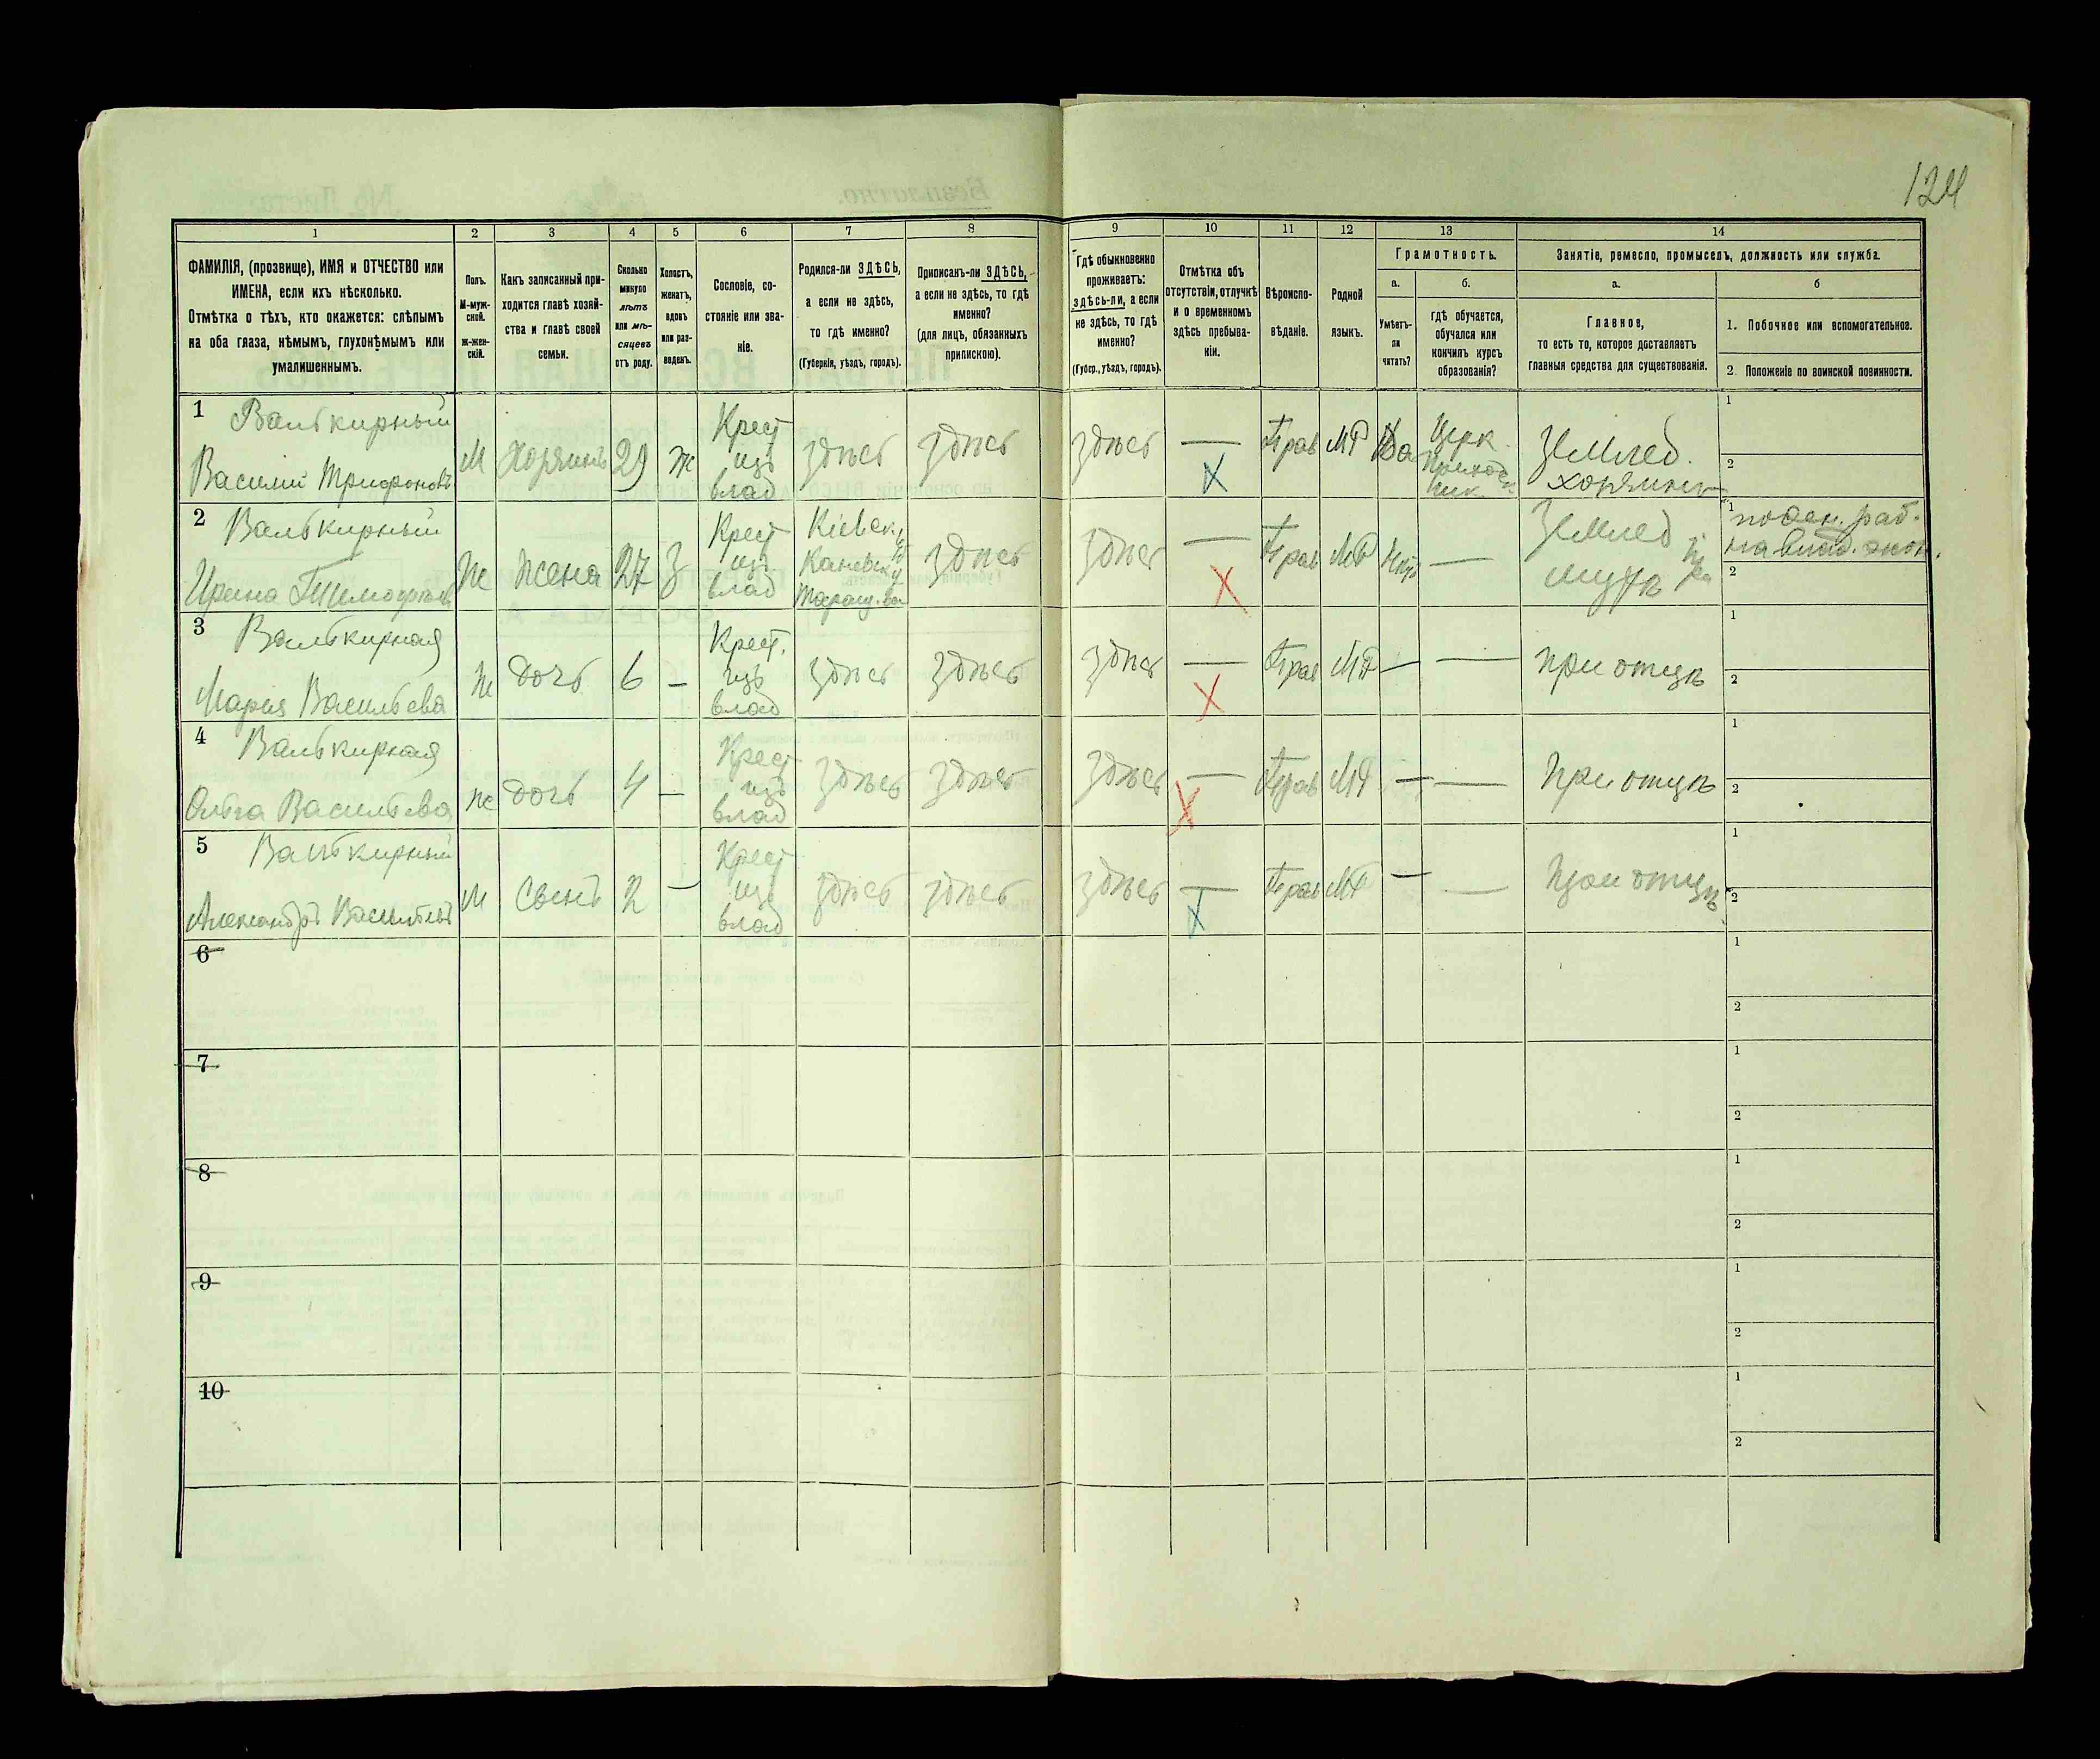 124
1 2 3 4 5 6 7 8 9 10 11 12 13 14
ФАМИЛІЯ, (прозвище), ИМЯ и ОТЧЕСТВО или
ИМЕНА, если ихъ нѣсколько.
Отмѣтка о тѣхъ, кто окажется: слѣпымъ
на оба глаза, нѣмымъ, глухонѣмымъ или
умалишеннымъ.
Полъ.
М-муж-
ской.
Ж-жен-
скій.
Какъ записанный при-
ходится главѣ хозяй-
ства и главѣ своей
семьи.
Сколько
минуло
лѣтъ
или мѣ-
сяцевъ
отъ роду.
Холостъ,
женатъ,
вдовъ
или раз-
веденъ.
Сословіе, со-
стояніе или зва-
ніе.
Родился-ли ЗДѢСЬ,
а если не здѣсь,
то гдѣ именно?
(Губернія, уѣздъ, городъ).
Приписанъ-ли ЗДѢСЬ,
а если не здѣсь, то гдѣ
именно?
(для лицъ, обязанныхъ
припискою).
Гдѣ обыкновенно
проживаетъ:
здѣсь-ли, а если
не здѣсь, то гдѣ
именно?
(Губер., уѣздъ, городъ).
Отмѣтка объ
отсутствіи, отлучкѣ
и о временномъ
здѣсь пребыва-
ніи.
Вѣроиспо-
вѣданіе.
Родной
языкъ.
Грамотность.
а.
Умѣетъ-
ли
читать?
б.
гдѣ обучается,
обучался или
кончилъ курсъ
образованія?
Занятіе, ремесло, промыселъ, должность или служба.
а.
Главное,
то есть то, которое доставляетъ
главныя средства для существованія.
б
1. Побочное или вспомогательное.
2. Положеніе по воинской повинности.
1 Валькирный
Василій Трифоновъ
М
Хозяинъ
29
ж
Крест
изъ
влад
здѣсь
здѣсь
здѣсь
—
X
Прав
МР
Да
Церк.
Приход.
Земл​ед.
хозяинъ
1
2
2 Валькирный
Ирина Тимофѣева
Ж
Жена
27
З
Крест
изъ
влад
Кіевск.
Каневск.
здѣсь
здѣсь
—
X
Прав
МР
Нѣтъ
—
Землед
при
мужѣ
1 поден. раб.
на влад. экон.
2
3 Валькирная
Марія Васильева
Ж
дочь
6
—
Крест.
изъ
влад
здѣсь
здѣсь
здѣсь
—
X
Прав
МР
—
—
при отцѣ
1
2
4 Валькирная
Ольга Васильева
ж
дочь
4
—
Крест
изъ
влад
здѣсь
здѣсь
здѣсь
—
X
Прав
МР
—
—
При отцѣ
1
2
5 Валькирный
Александръ Васильевъ
М
Сынъ
2
—
Крест
изъ
влад
здѣсь
здѣсь
здѣсь
—
X
Прав
МР
—
—
При отцѣ
1
2
6
1
2
7
1
2
8
1
2
9
1
2
10
1
2